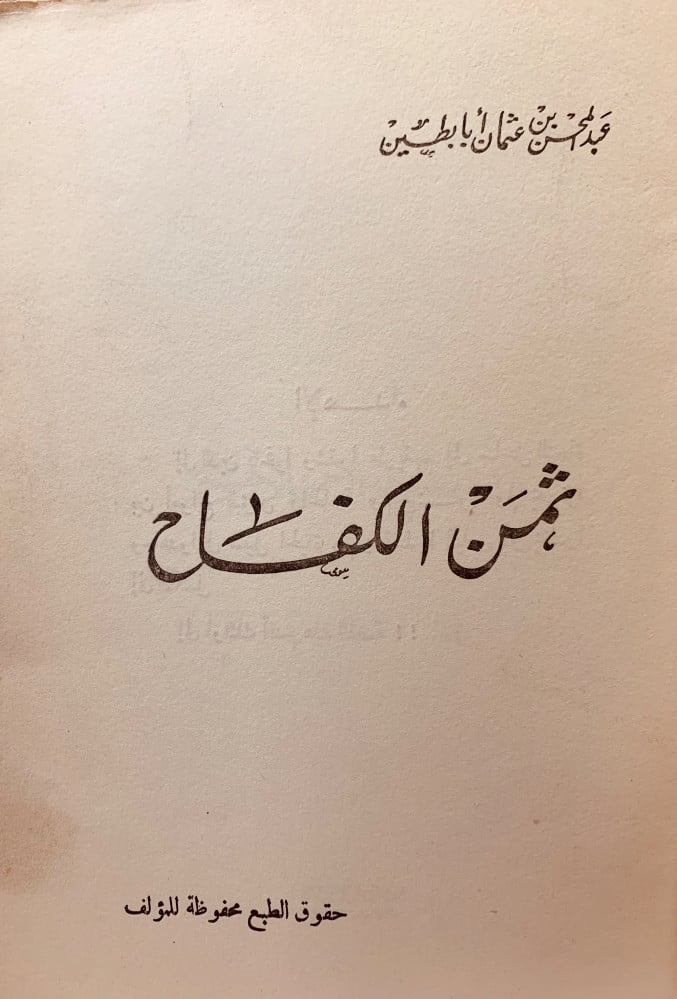 عبد المحسن بن عثمان أبا بطين
ثمن الكفاح
حقوق الطبع محفوظة للمؤلف